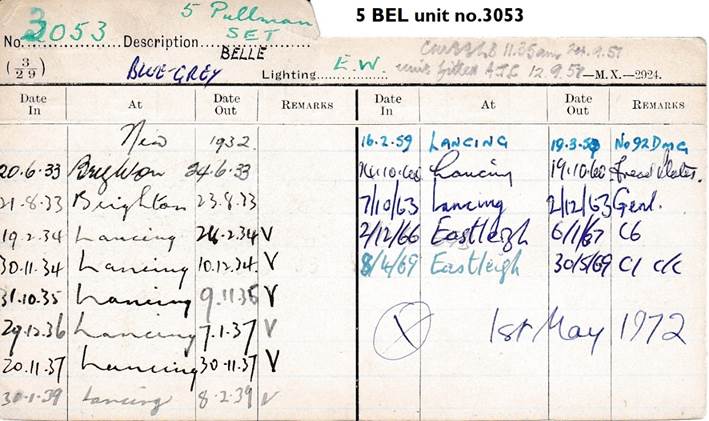 5 BEL unit no.3053
5 Pullman
SET
No. 3053 Description BELLE
(3/29) BLUE-GREY Lighting E.W
12.9.57 —M.X.—2924.
Date In At Date Out REMARKS Date In At Date Out REMARKS
New 1932. 16.2.59 LANCING 19.3.59 No92 DMG
20.6.33 Brighton 24.6.33 Lancing 19.10.60
21.8.33 Brighton 23.8.33 7/10/63 Lancing 2/12/63 Genl.
19.2.34 Lancing 24.2.34 V 2/12/66 Eastleigh 6/1/67 C6
30.11.34 Lancing 10.12.34. V 8/4/69 Eastleigh 30/5/69 C1 c/c
31.10.35 Lancing 9.11.35 V
29.12.36 Lancing 7.1.37 V X 1st May 1972
20.11.37 Lancing 30.11.37 V
30.1.39 Lancing 8.2.39 V